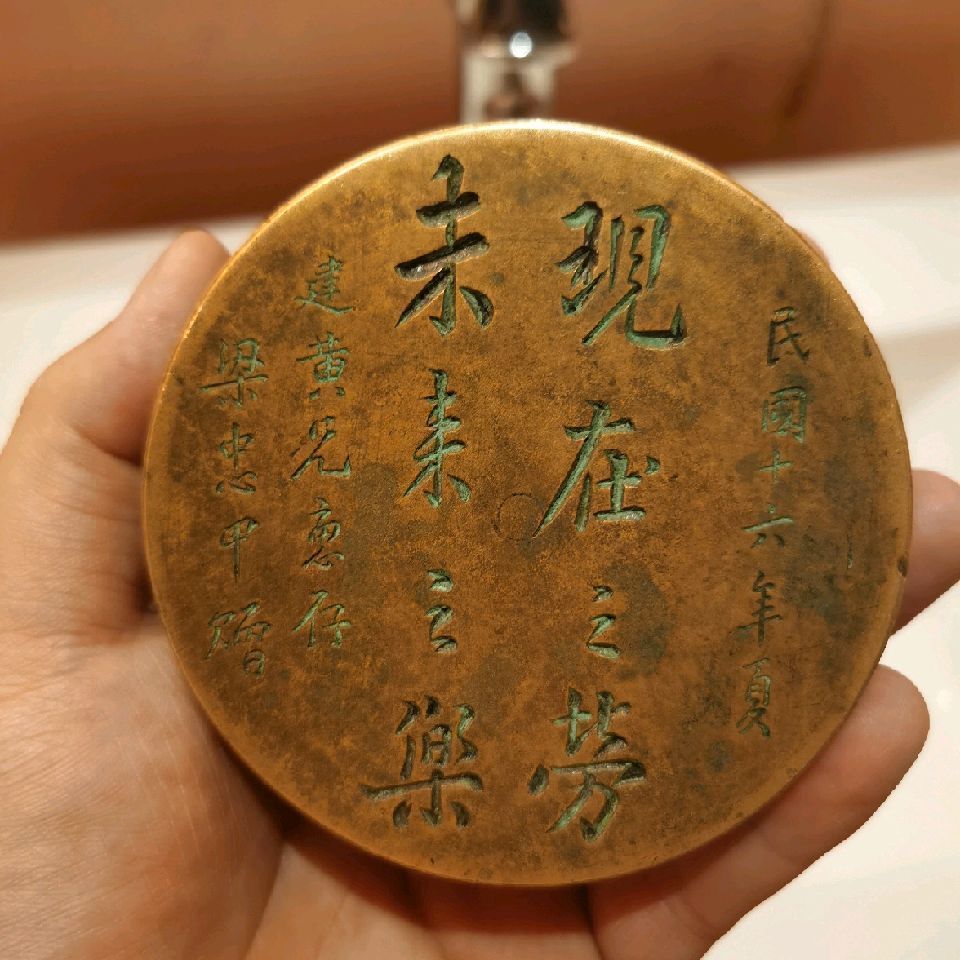 民國十六年夏
現在之勞
未来之樂
建黄兄惠存
梁忠甲贈